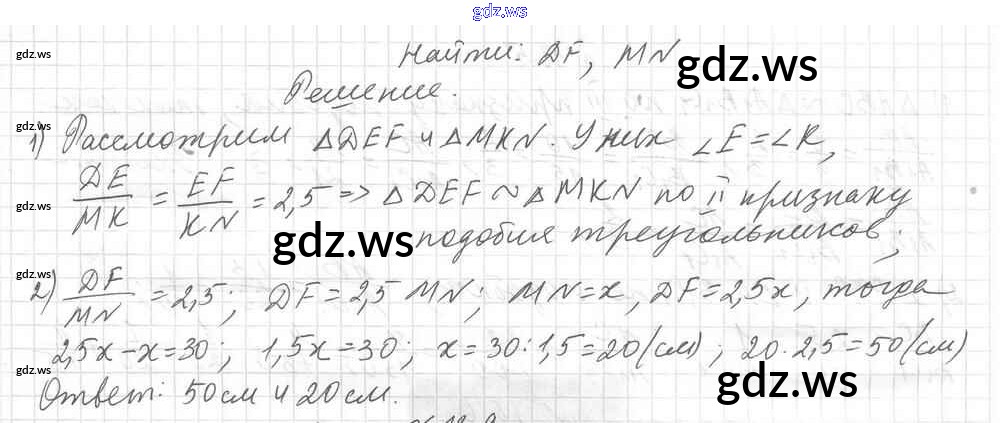 gdz.ws
gdz.ws
Найти: DF, MN
gdz.ws
Решение.
gdz.ws
1) Рассмотрим △DEF и △MKN. У них ∠E = ∠K,
gdz.ws
DE/MK = EF/KN = 2,5 => △DEF ~ △MKN по II признаку
gdz.ws
подобия треугольников;
gdz.ws
2) DF/MN = 2,5; DF = 2,5 MN; MN = x, DF = 2,5x, тогда
gdz.ws
2,5x - x = 30; 1,5x = 30; x = 30 : 1,5 = 20 (см); 20 · 2,5 = 50 (см)
gdz.ws
gdz.ws
Ответ: 50 см и 20 см.